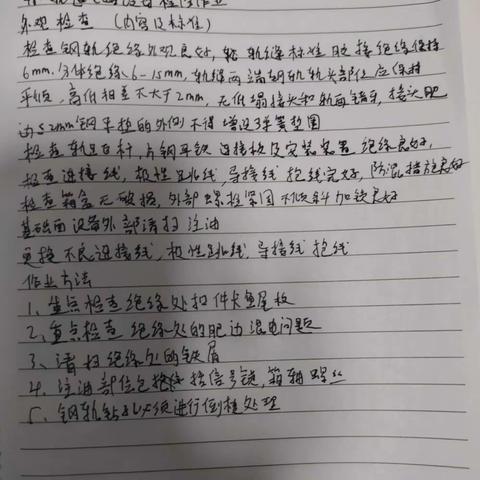 外观检查 (内容及标准)
检查钢轨绝缘外观良好,轨缝标准胶接绝缘保持
6mm.分体绝缘、6-15mm,轨缝两端钢轨轨头部位应保持
平顺,高低相差不大于2mm,无低塌接头和轨面错牙,接头肥
边≤2mm 钢 的外侧不得增设弹簧垫圈
检查轨距杆,角钢平铁连接板及安装装置绝缘良好,
检查连接线,极性跳线导接线扼线完好,防混措施良好
检查箱盒无破损,外部螺栓紧固不倾斜加锁良好
基础面设备外部清扫注油
更换不良连接线,极性跳线、导接线扼线
作业方法
1、重点检查绝缘处扣件大鱼尾板
2、重点检查绝缘处的肥边混电问题
3、清扫绝缘处的铁屑
4、注油部位包括信号锁,箱轴螺丝
5、钢轨钻孔必须进行倒棱处理